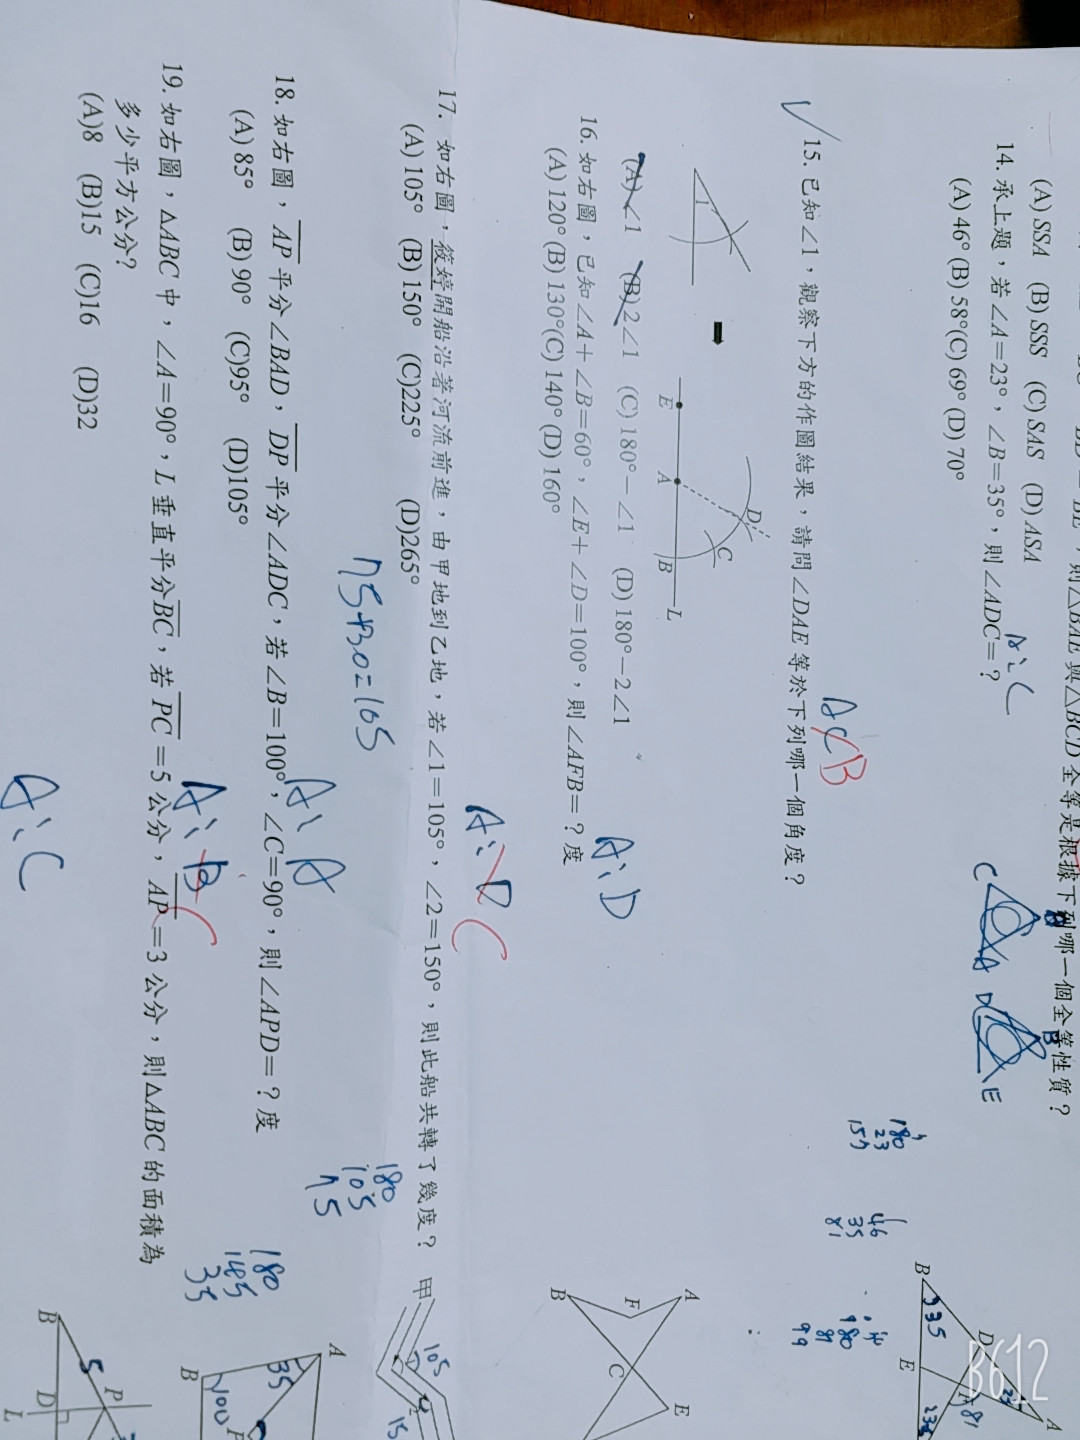 (A) SSA (B) SSS (C) SAS (D) ASA
14. 承上題，若∠A=23°，∠B=35°，則∠ADC=？
(A) 46° (B) 58° (C) 69° (D) 70°
A:C
15. 已知∠1，觀察下方的作圖結果，請問∠DAE等於下列哪一個角度？
1
E A B L D C
(A)∠1 (B)2∠1 (C)180°－∠1 (D)180°－2∠1
16. 如右圖，已知∠A＋∠B=60°，∠E＋∠D=100°，則∠AFB=？度
(A) 120° (B) 130° (C) 140° (D) 160°
A:D
17. 如右圖，筱婷開船沿著河流前進，由甲地到乙地，若∠1=105°，∠2=150°，則此船共轉了幾度？
(A) 105° (B) 150° (C)225° (D)265°
75+30=105
18. 如右圖，AP平分∠BAD，DP平分∠ADC，若∠B=100°，∠C=90°，則∠APD=？度
(A) 85° (B) 90° (C)95° (D)105°
19. 如右圖，△ABC中，∠A=90°，L垂直平分BC，若PC=5公分，AP=3公分，則△ABC的面積為
多少平方公分？
(A)8 (B)15 (C)16 (D)32
A:C
C A D B E
180
23
157
46
35
81
180
81
99
B D A E
35
81
A F B C E
180
105
75
甲
105
180
145
35
A B P
35
100
B D L P
5
B612